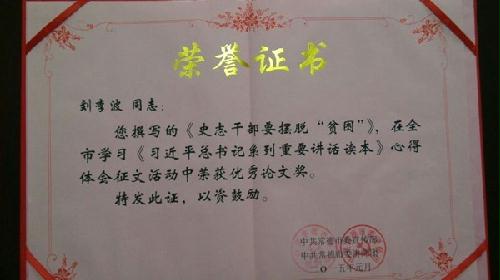 荣誉证书
刘季波 同志：
您撰写的《史志干部要摆脱“贫困”》，在全
市学习《习近平总书记系列重要讲话读本》心得
体会征文活动中荣获优秀论文奖。
特发此证，以资鼓励。
中共常德市委宣传部
中共常德
五年元月